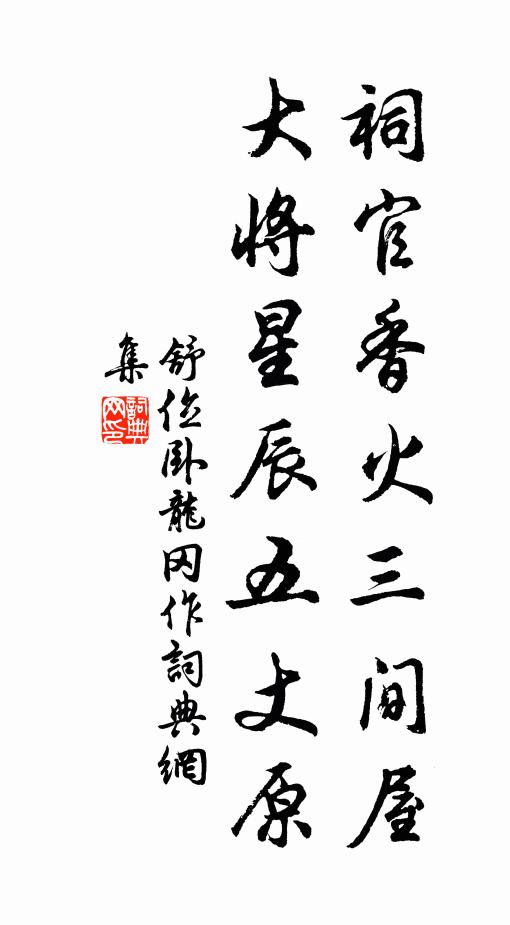 祠官香火三间屋
大将星辰五丈原
舒位卧龍冈作詞典網
集
詞典网印